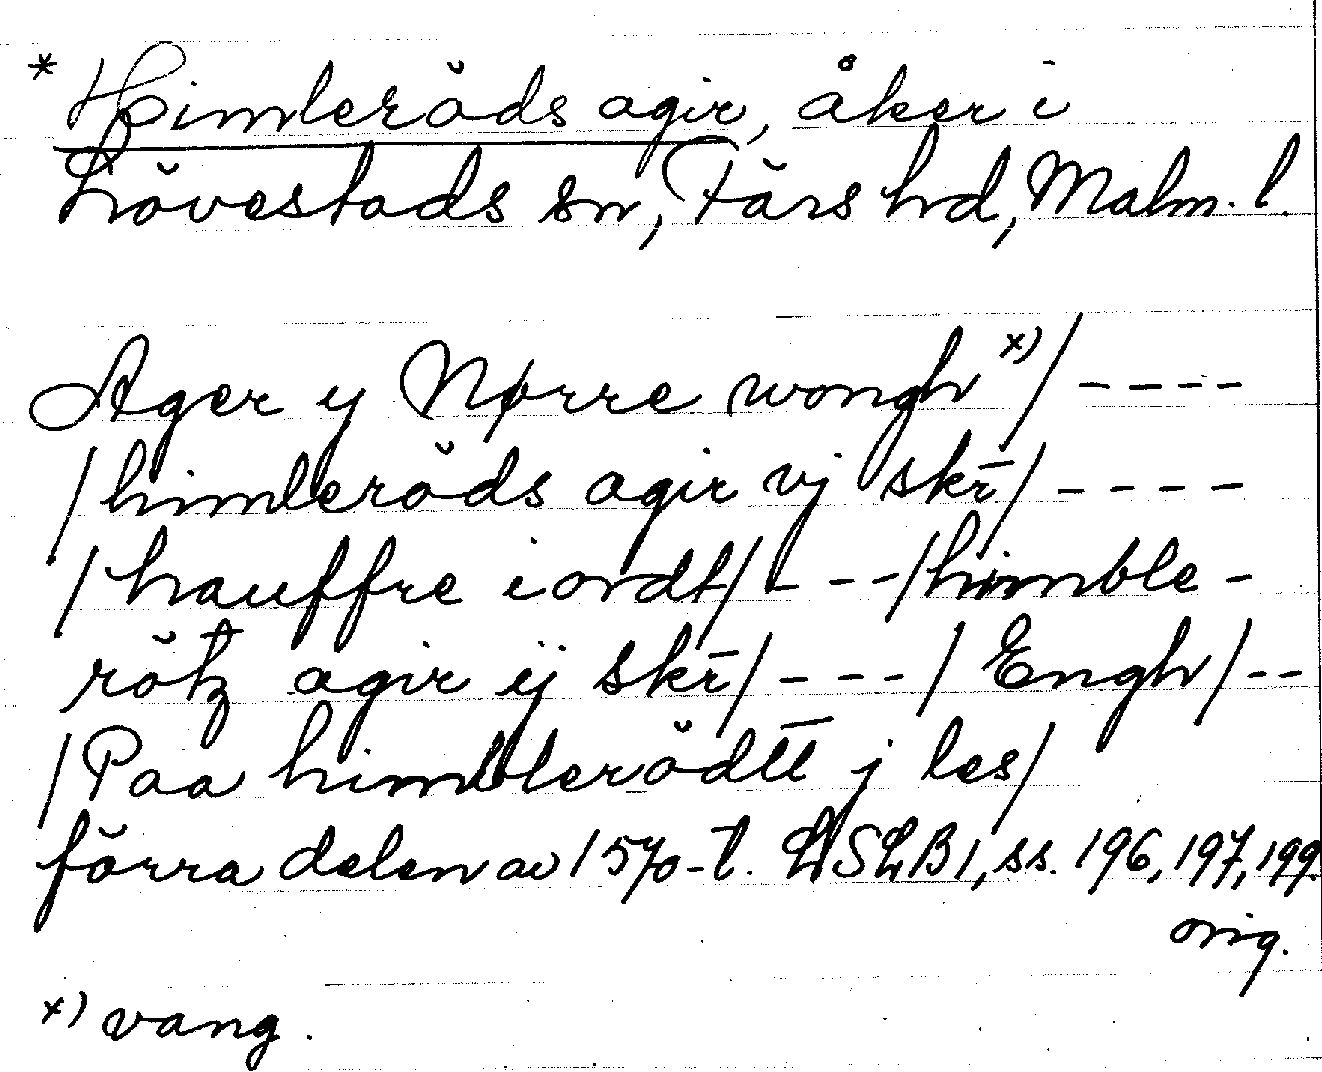 * Himleröds agir, åker i
Lövestads sn, Färs hd, Malm. l.
Ager y Nørre wongh x) / ----
/ himleröds agir vj skr̄ / ----
/ hauffre iordt / - --- / himble-
rötz agir ij skr̄ / ---- / Engh / --
/ Paa himblerödtt j les /
förra delen av 1570-t. LSLB1, ss. 196, 197, 199.
orig.
x) vang.